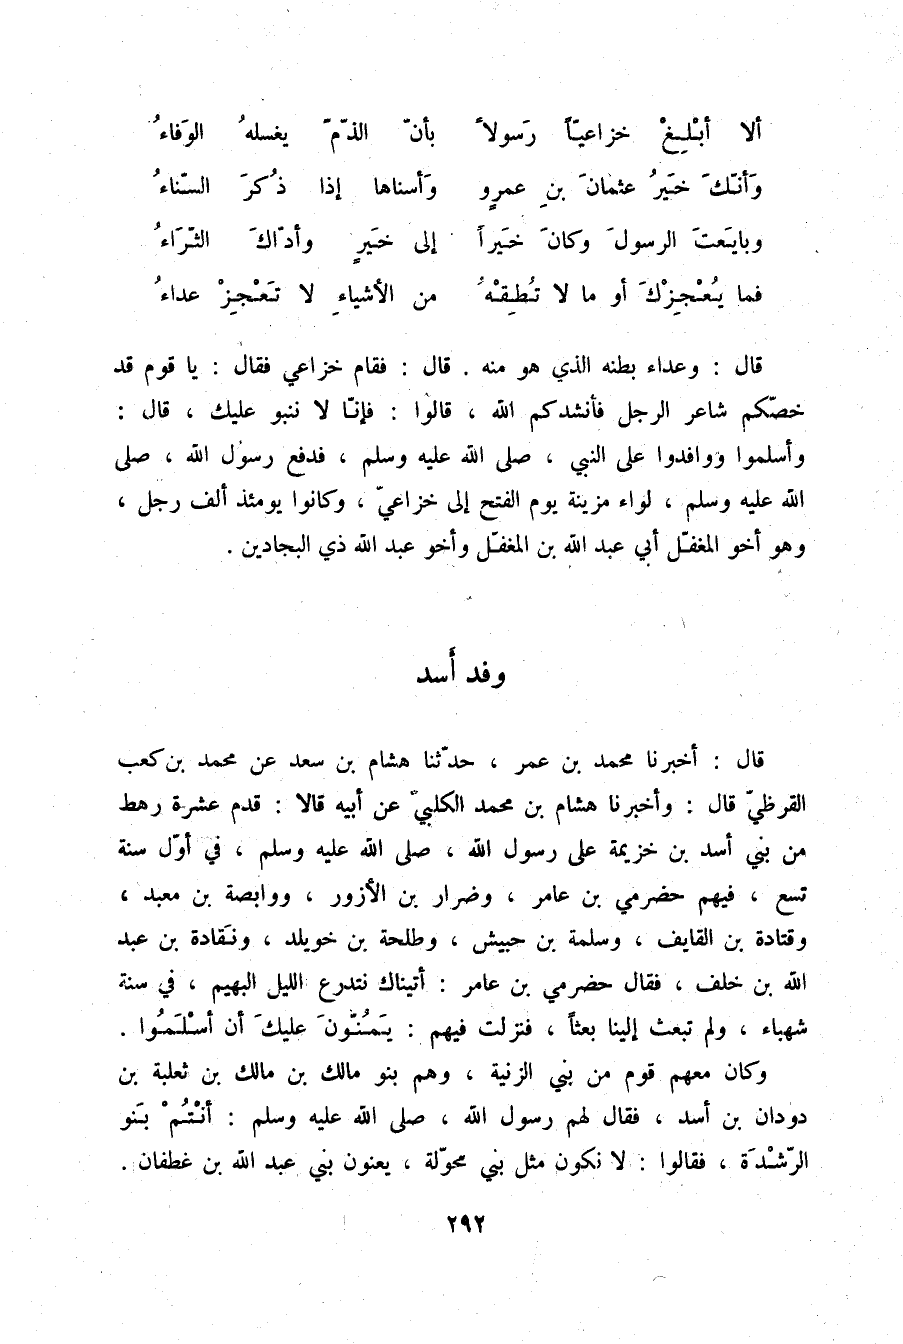 ألا أبْلِغْ خزاعيّاً رَسولاً بأنّ الذّمّ يغسلهُ الوَفاءُ
وَأنّكَ خَيرُ عثمانَ بنِ عمرٍو وَأسناها إذا ذُكرَ السّناءُ
وبايَعتَ الرسولَ وكانَ خَيراً إلى خَيرٍ وأدّاكَ الثّرَاءُ
فما يُعْجِزْكَ أو ما لا تُطِقْهُ من الأشياءِ لا تَعْجِزْ عداءُ
قال : وعداء بطنه الذي هو منه . قال : فقام خزاعي فقال : يا قوم قد
خصّكم شاعر الرجل فأنشدكم الله ، قالوا : فإنّا لا ننبو عليك ، قال :
وأسلموا ووافدوا على النبي ، صلى الله عليه وسلم ، فدفع رسول الله ، صلى
الله عليه وسلم ، لواء مزينة يوم الفتح إلى خزاعيّ ، وكانوا يومئذ ألف رجل ،
وهو أخو المغفّل أبي عبد الله بن المغفّل وأخو عبد الله ذي البجادين .
وفد أَسد
قال : أخبرنا محمد بن عمر ، حدّثنا هشام بن سعد عن محمد بن كعب
القرظيّ قال : وأخبرنا هشام بن محمد الكلبيّ عن أبيه قالا : قدم عشرة رهط
من بني أسد بن خزيمة على رسول الله ، صلى الله عليه وسلم ، في أوّل سنة
تسع ، فيهم حضرمي بن عامر ، وضرار بن الأزور ، ووابصة بن معبد ،
وقتادة بن القايف ، وسلمة بن حبيش ، وطلحة بن خويلد ، ونَقادة بن عبد
الله بن خلف ، فقال حضرمي بن عامر : أتيناك نتدرع الليل البهيم ، في سنة
شهباء ، ولم تبعث إلينا بعثاً ، فنزلت فيهم : يَمُنّونَ عليكَ أن أسْلَمُوا .
وكان معهم قوم من بني الزنية ، وهم بنو مالك بن مالك بن ثعلبة بن
دودان بن أسد ، فقال لهم رسول الله ، صلى الله عليه وسلم : أنْتُمْ بَنو
الرّشْدَة ، فقالوا : لا نكون مثل بني محوّلة ، يعنون بني عبد الله بن غطفان .
٢٩٢